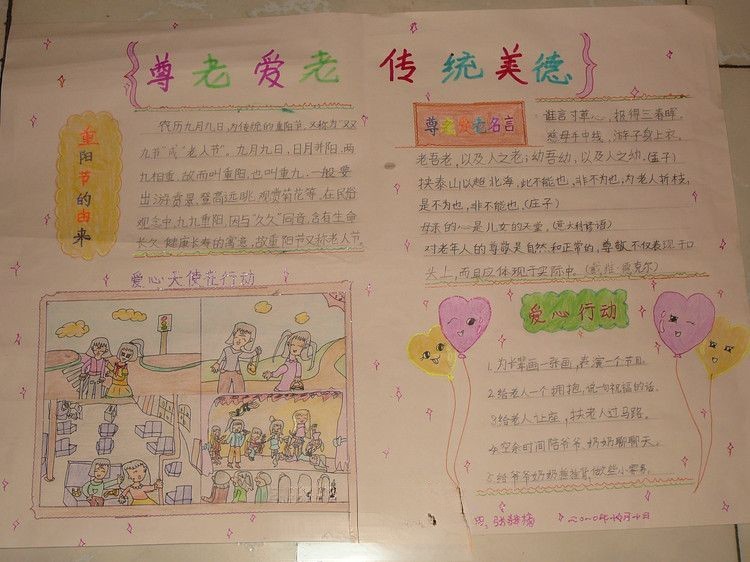 尊老爱老 传统美德
重阳节的由来
农历九月九日,为传统的重阳节,又称为“双
九节”或“老人节”。九月九日,日月并阳,两
九相重,故而叫重阳,也叫重九,一般要
出游赏景、登高远眺、观赏菊花等,在民俗
观念中,九九重阳,因与“久久”同音,含有生命
长久、健康长寿的寓意,故重阳节又称老人节。
爱心天使在行动
尊老爱老名言
谁言寸草心,报得三春晖。
慈母手中线,游子身上衣。
老吾老,以及人之老;幼吾幼,以及人之幼。(孟子)
挟泰山以超北海,此不能也,非不为也,为老人折枝,
是不为也,非不能也。(庄子)
母亲的心是儿女的天堂。(意大利谚语)
对老年人的尊敬是自然和正常的,尊敬不仅表现于口
头上,而且应体现于实际中。(戴维 克尔)
爱心行动
1.为长辈画一张画,表演一个节目。
2.给老人一个拥抱,说一句祝福的话。
3.给老人让座,扶老人过马路。
4.空余时间陪爷爷、奶奶聊聊天。
5.给爷爷奶奶捶捶背,做些小家务。